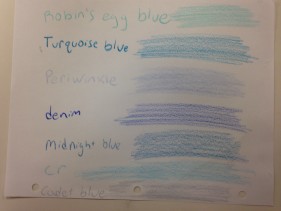 Robin's egg blue
Turquoise blue
Periwinkle
denim
Midnight blue
cr
Cadet blue